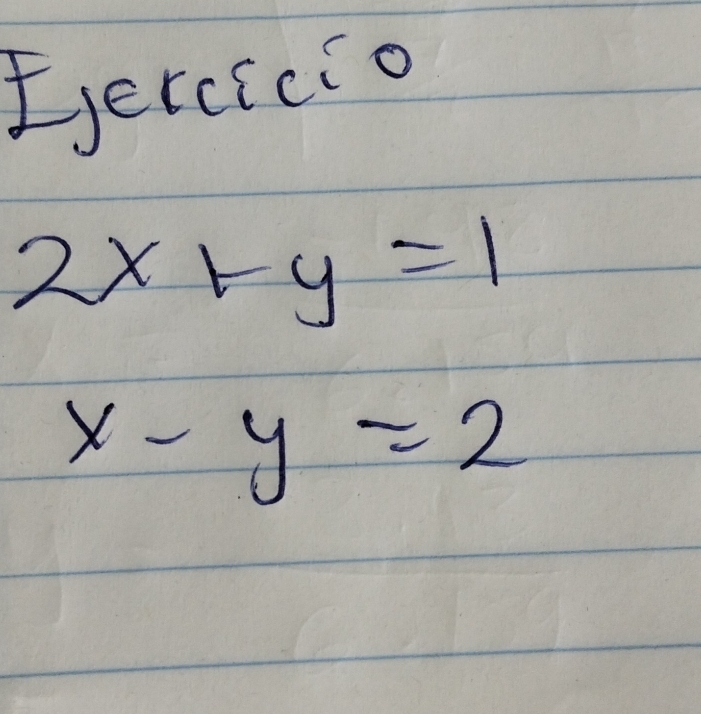 Ejercicio
2x + y = 1
x - y = 2